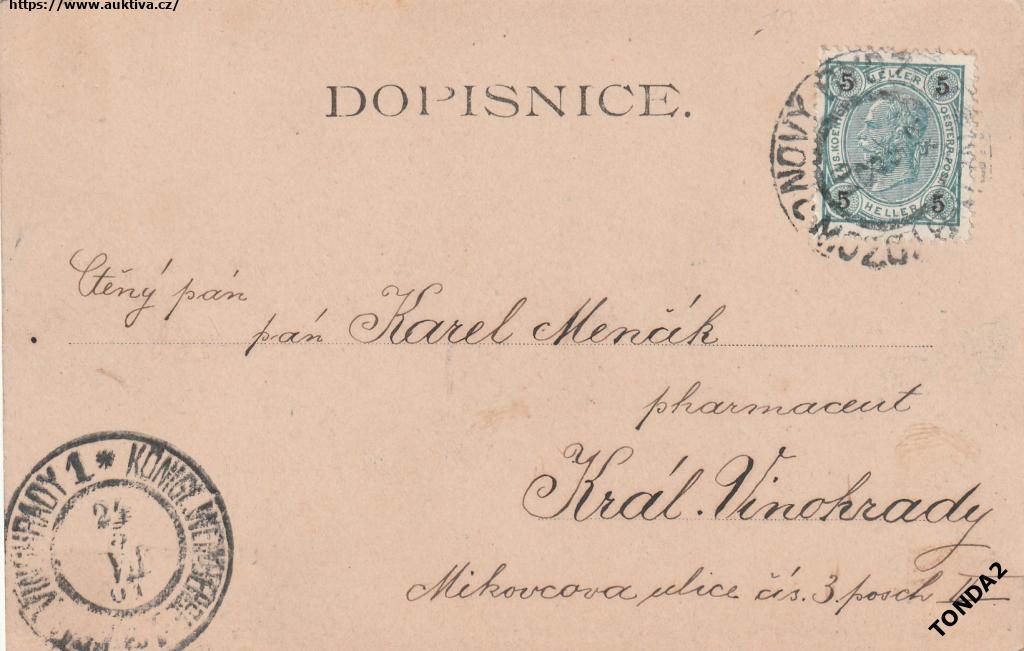 https://www.auktiva.cz/
DOPISNICE.
5 HELLER 5
OESTERR. POST
5 HELLER 5
Ctěný pán
pán Karel Menčák
pharmaceut
Král. Vinohrady
Mikovcova ulice čís. 3. posch II
1 * KÖNIGL. WEINBERGE
VINOHRADY
24
VII
01
TONDA2